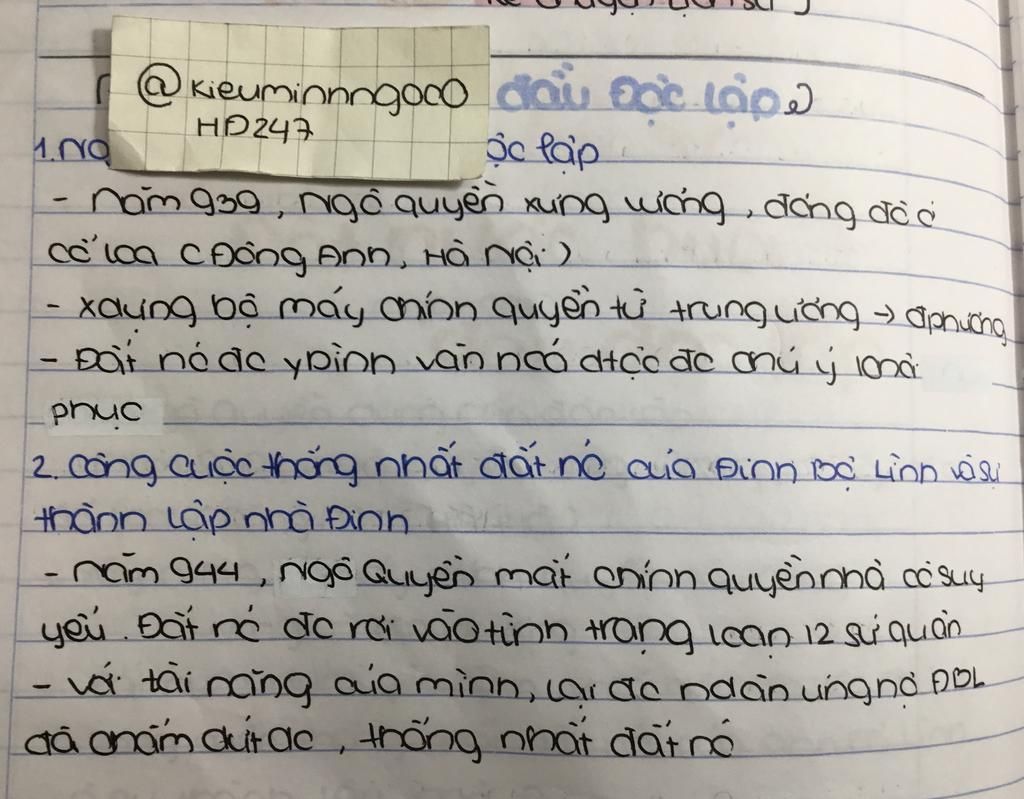 @kieuminnngoc0
HD247
đầu Độc lập
1. Ng ộc lập
- năm 939, Ngô quyền xưng vương, đóng đô ở
cổ loa (Đông Anh, Hà Nội)
- xdựng bộ máy chính quyền từ trung ương → đphương
- Đất nc đc ybình văn hoá dtộc đc chú ý khôi
phục
2. Công cuộc thống nhất đất nc của Đinh Bộ Lĩnh và sự
thành lập nhà Đinh
- năm 944, Ngô Quyền mất chính quyền nhà Ngô suy
yếu. Đất nc đc rơi vào tình trạng loạn 12 sứ quân
- với tài năng của mình, lại đc ndân ủng hộ ĐBL
đã chấm dứt đc, thống nhất đất nc